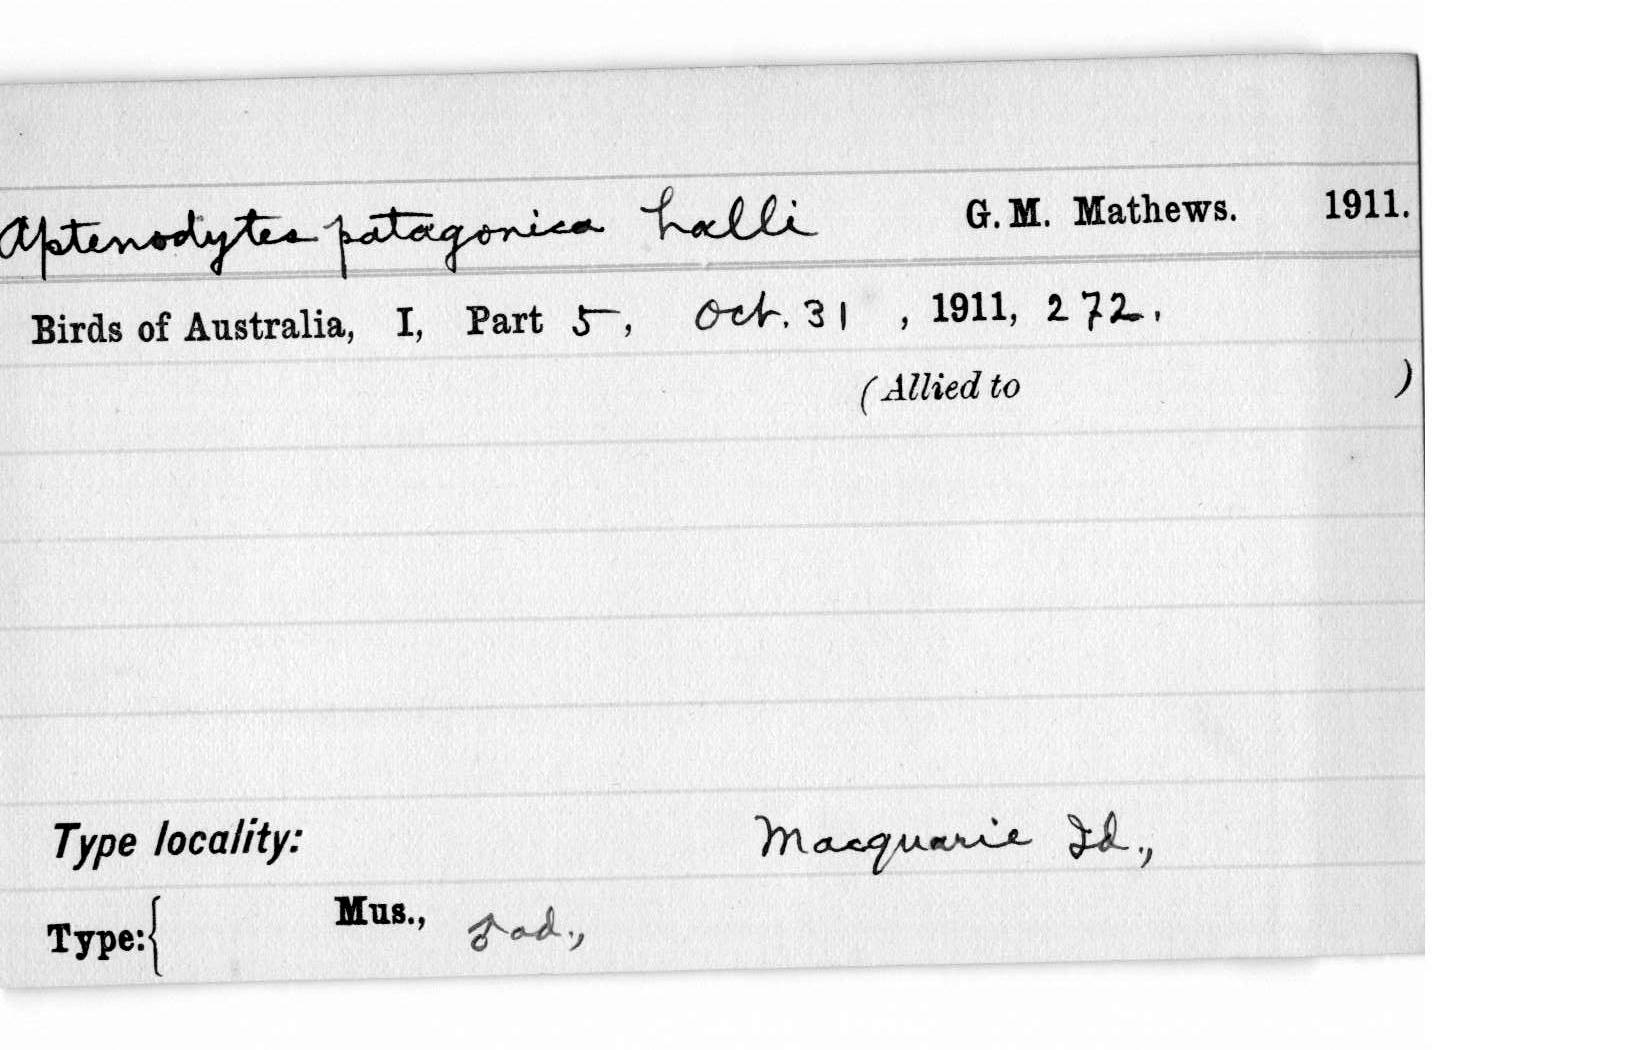 Aptenodytes patagonica halli G. M. Mathews. 1911.
Birds of Australia, I, Part 5, Oct. 31 , 1911, 272.
(Allied to )
Type locality: Macquarie Id.,
Type:{ Mus., ♂ad.,